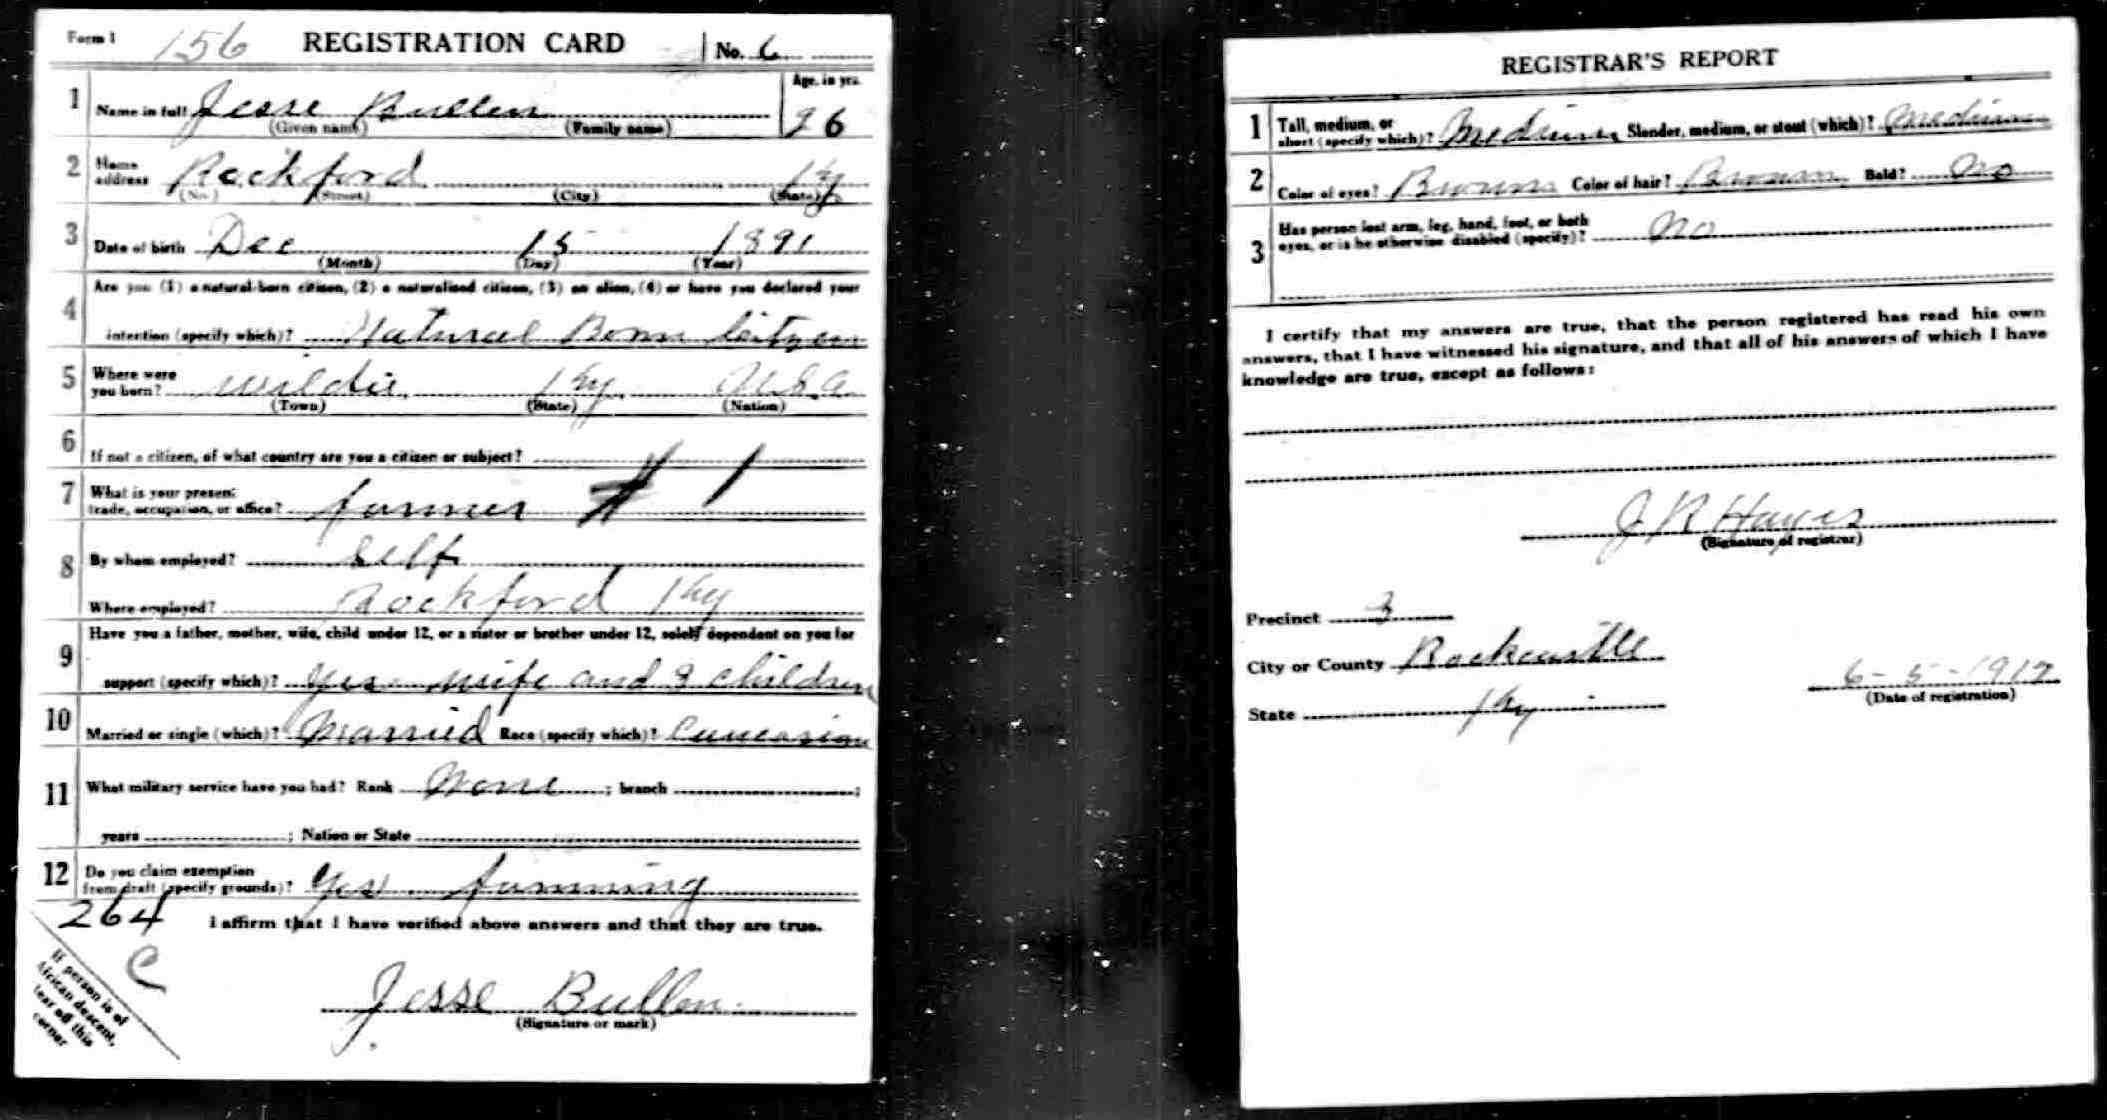 Form 1 156 REGISTRATION CARD No. 6
1 Name in full Jesse Bullen Age, in yrs. 26
(Given name) (Family name)
2 Home address Rockford Ky
(No.) (Street) (City) (State)
3 Date of birth Dec 15 1891
(Month) (Day) (Year)
4 Are you (1) a natural-born citizen, (2) a naturalized citizen, (3) an alien, (4) or have you declared your
intention (specify which)? Natural Born Citzen
5 Where were you born? Wildie Ky U.S.A
(Town) (State) (Nation)
6 If not a citizen, of what country are you a citizen or subject?
7 What is your present
trade, occupation, or office? farmer # 1
8 By whom employed? Self
Where employed? Rockford Ky
9 Have you a father, mother, wife, child under 12, or a sister or brother under 12, solely dependent on you for
support (specify which)? Yes wife and children
10 Married or single (which)? Married Race (specify which)? Caucasian
11 What military service have you had? Rank None ; branch ;
years ; Nation or State
12 Do you claim exemption
from draft (specify grounds)? Yes. farming
264 I affirm that I have verified above answers and that they are true.
C
Jesse Bullen
(Signature or mark)
If person is of
African descent,
tear off this
corner
REGISTRAR'S REPORT
1 Tall, medium, or
short (specify which)? Medium Slender, medium, or stout (which)? Medium
2 Color of eyes? Brown Color of hair? Brown Bald? No
3 Has person lost arm, leg, hand, foot, or both
eyes, or is he otherwise disabled (specify)? No
I certify that my answers are true, that the person registered has read his own
answers, that I have witnessed his signature, and that all of his answers of which I have
knowledge are true, except as follows:
J R Hayes
(Signature of registrar)
Precinct 3
City or County Rockcastle
6-5-1917
(Date of registration)
State Ky